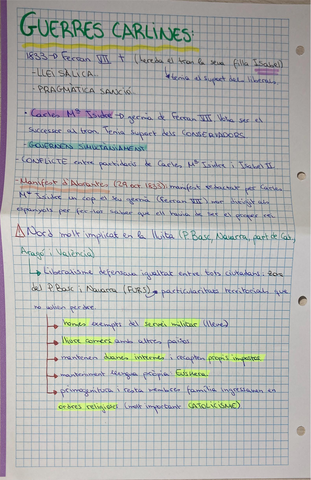 GUERRES CARLINES
1833 → Ferran VII † (hereda el tron la seva filla Isabel)
- LLEI SÀLICA. tenia el suport dels liberals.
- PRAGMÀTICA SANCIÓ.
· Carles Mª Isidre → germà de Ferran VII. Volia ser el
successor al tron. Tenia suport dels CONSERVADORS.
- GOVERNEN SIMULTANIAMENT
- CONFLICTE entre partidaris de Carles Mª Isidre i Isabel II
- Manifest d'Abrantes (29 oct. 1833): manifest redactat per Carles
Mª Isidre un cop el seu germà (Ferran VII) mor dirigit als
espanyols per fer-los saber que ell havia de ser el proper rei.
Nord molt implicat en la lluita (P. Basc, Navarra, part de Cat,
Aragó i València)
→ Liberalisme defensava igualtat entre tots ciutadans:
del P. Basc i Navarra (FURS) → particularitats territorials que
no volien perdre.
→ homes exempts del servei militar (lleva)
→ lliure comerç amb altres països
→ mantenen duanes internes i recapten propis impostos
→ manteniment llengua pròpia: Euskera.
→ primogenitura i resta membres família ingressaven en
ordres religiosos (molt important CATOLICISME)